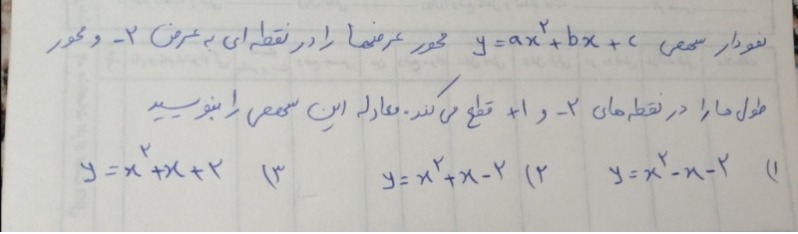 نمودار سهمی y = ax² + bx + c محور عرضها را در نقطه‌ای به عرض ۲- و محور
طول ها را در نقطه های ۲- و ۱+ قطع می کند. معادله این سهمی را بنویسید
۱) y = x² - x - ۲ ۲) y = x² + x - ۲ ۳) y = x² + x + ۲